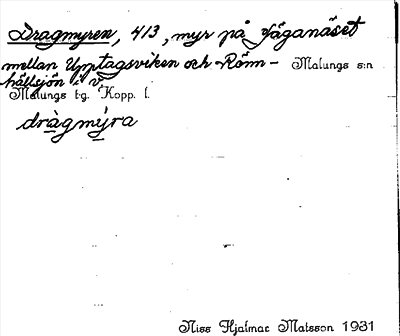 Dragmyren, 413, myr på Fäganäset
mellan Upptagsviken och Rönn- Malungs s:n
hällsjön i v.
Malungs t:g. Kopp. l.
dràgmýra
Niss Hjalmar Matsson 1931